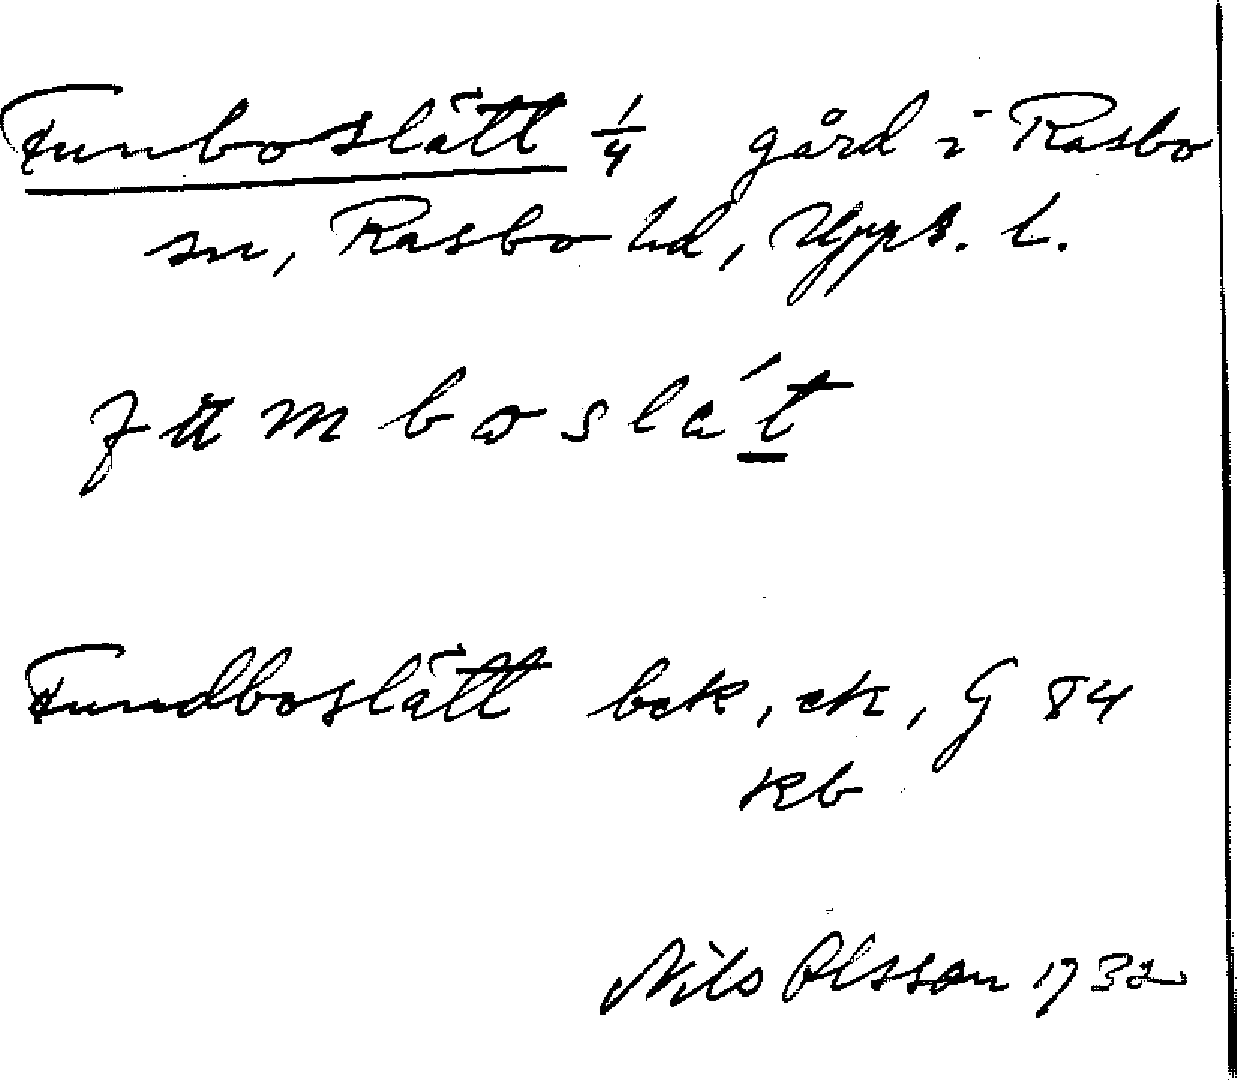 Funboslätt 1/4 gård i Rasbo
sn, Rasbo hd, Upps. l.
fumboslát
Fundboslätt bck, ek, G 84
kb
Nils Olsson 1932